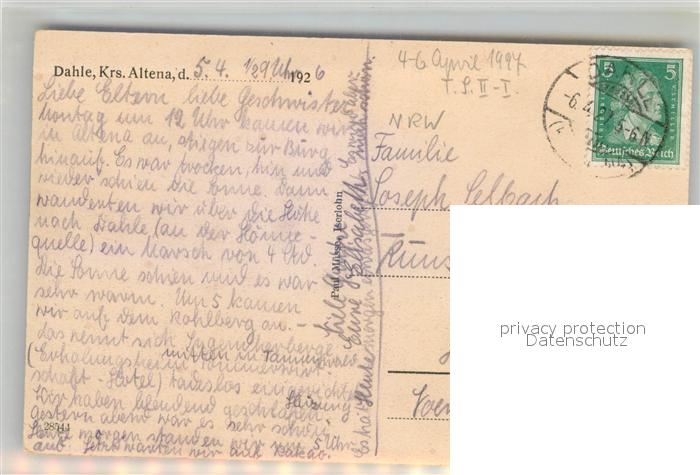 Dahle, Krs. Altena, d. 5. 4. 1/29 Uhr 192 6
Liebe Eltern liebe Geschwister
Montag um 12 Uhr kamen wir
in Altena an, stiegen zur Burg
hinauf. Es war trocken, hin und
wieder schien die Sonne. Dann
wanderten wir über die Höhe
nach Dahle (an der Hönne-
quelle) ein Marsch von 4 Std.
Die Sonne schien und es war
sehr warm. Um 5 kamen
wir auf dem Kohlberg an. —
Das nennt sich Jugendherberge
mitten im Tannenwald
(Erholungsheim Sommerwirt-
schaft - Hotel) tadellos eingerichtet
Wir haben blendend geschlafen.
Heizung
Gestern abend war es sehr schön
Heute morgen standen wir um 5 Uhr
auf. Jetzt warten wir auf Kakao.
28544
Liebe
Eure Elisabeth
Es hat heute morgen
Paul Iserlohn
4-6 April 1927
T.S. II-I
NRW
Familie
Joseph Selbach
5 5
Deutsches Reich
-6.4.27.
privacy protection
Datenschutz